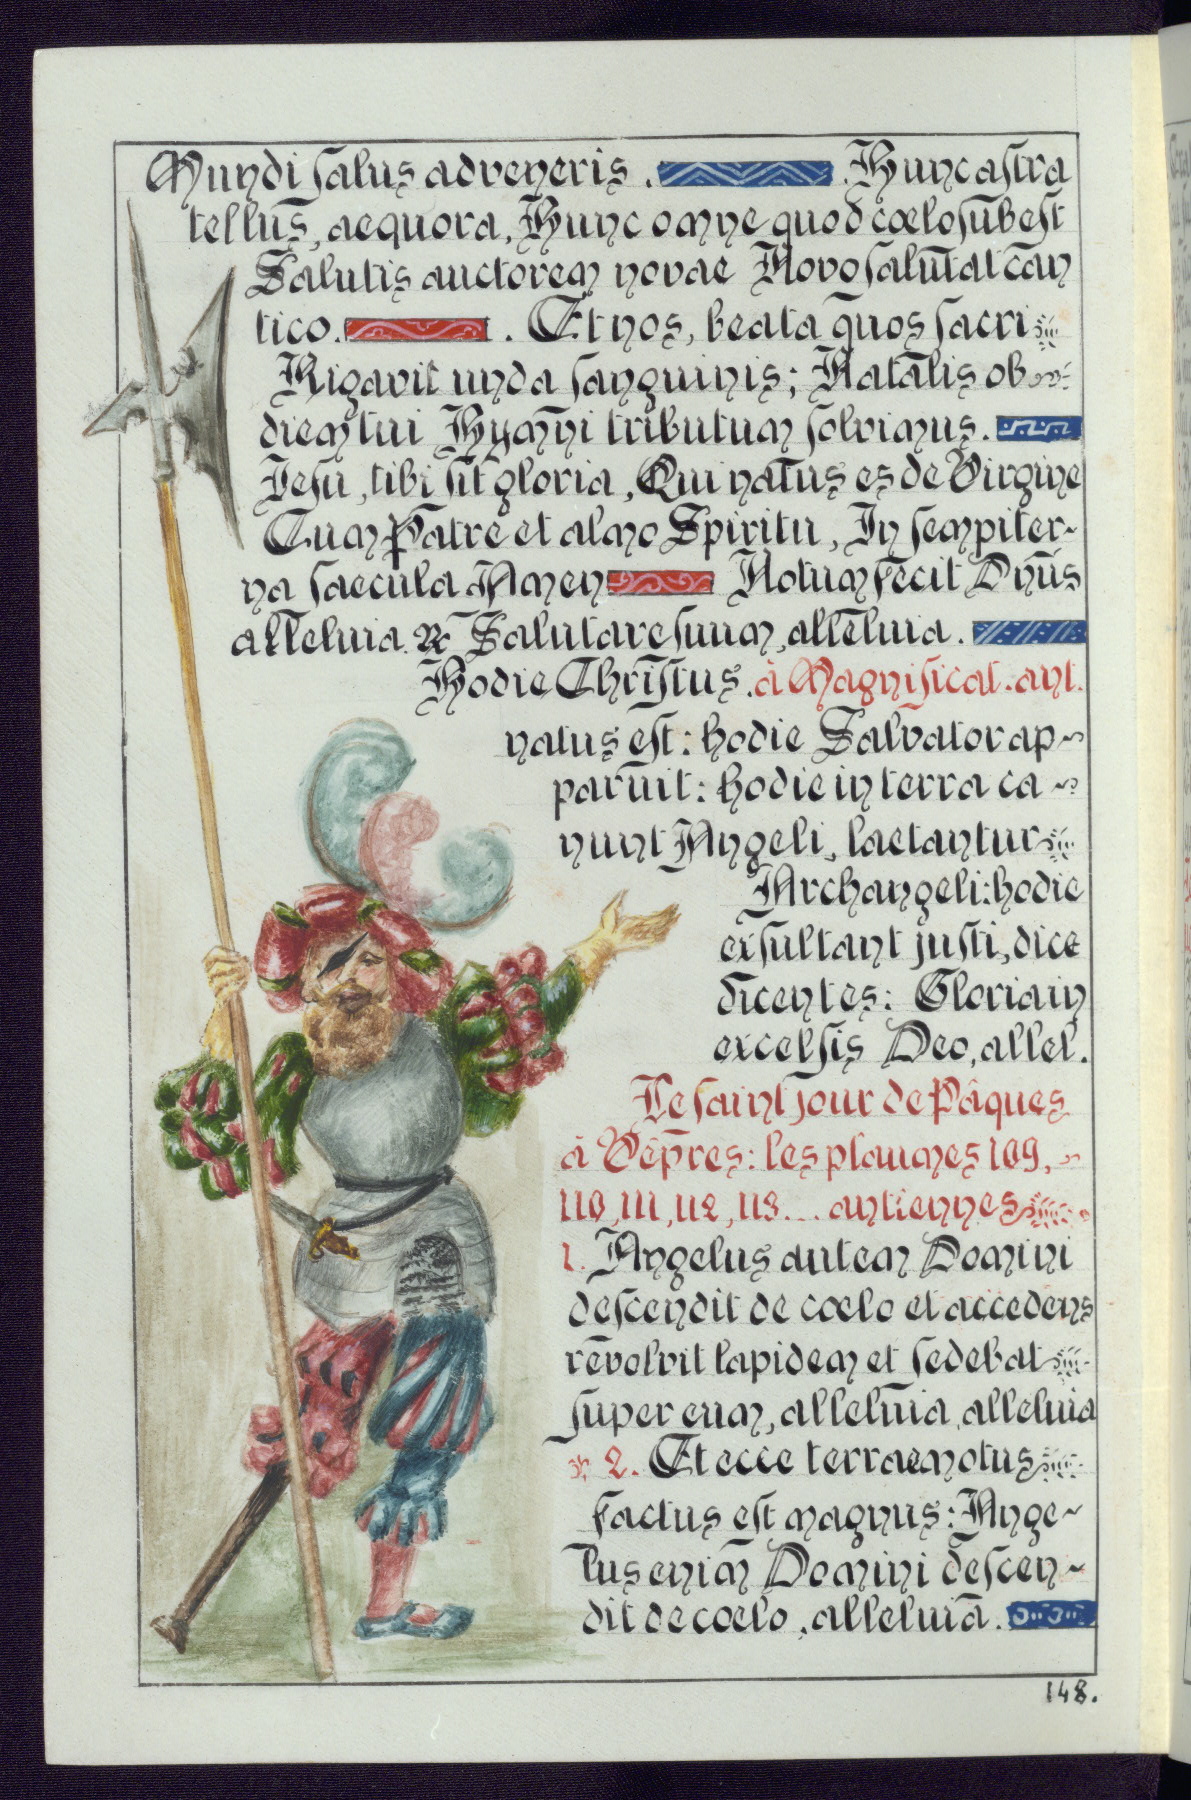 Mundi salus adveneris. Hunc astra
tellus, aequora, Hunc omne quod cœlo subest
Salutis auctorem novae Novo salutat can
tico. Et nos, beata quos sacri
Rigavit unda sanguinis; Natalis ob
diem tui Hymni tributum solvimus.
Jesu, tibi sit gloria, Qui natus es de Virgine
Cum Patre et almo Spiritu, In sempiter~
na saecula Amen Notum fecit Dñus
alleluia. ℟ Salutare suum, alleluia.
Hodie Christus. à Magnificat. ant.
natus est: hodie Salvator ap~
paruit: hodie in terra ca~
nunt Angeli, laetantur
Archangeli: hodie
exsultant justi, dice
dicentes: Gloria in
excelsis Deo, allel.
Le saint jour de Pâques
à Vêpres: les psaumes 109,
110, 111, 112, 113... antiennes
1. Angelus autem Domini
descendit de cœlo et accedens
revolvit lapidem et sedebat
super eum, alleluia, alleluia
2. Et ecce terraemotus
factus est magnus: Ange~
lus enim Domini descen~
dit de cœlo, alleluia.
148.